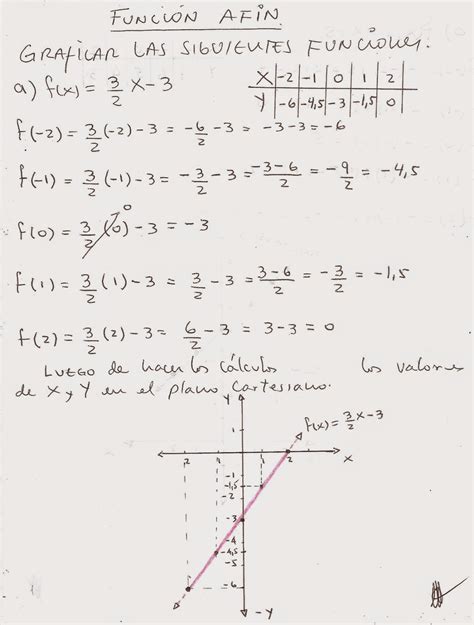 FUNCIÓN AFIN.
GRAFICAR LAS SIGUIENTES FUNCIONES.
a) f(x) = 3/2 x - 3
X | -2 | -1 | 0 | 1 | 2
Y | -6 | -4,5 | -3 | -1,5 | 0
f(-2) = 3/2 (-2) - 3 = -6/2 - 3 = -3 - 3 = -6
f(-1) = 3/2 (-1) - 3 = -3/2 - 3 = -3-6/2 = -9/2 = -4,5
f(0) = 3/2 (0) 0 - 3 = -3
f(1) = 3/2 (1) - 3 = 3/2 - 3 = 3-6/2 = -3/2 = -1,5
f(2) = 3/2 (2) - 3 = 6/2 - 3 = 3 - 3 = 0
LUEGO de hacer los cálculos los valores
de X y Y en el plano cartesiano.
Y
f(x) = 3/2 x - 3
1
-2 -1 1 2 X
-1
-1,5
-2
-3
-4
-4,5
-5
-6
-Y